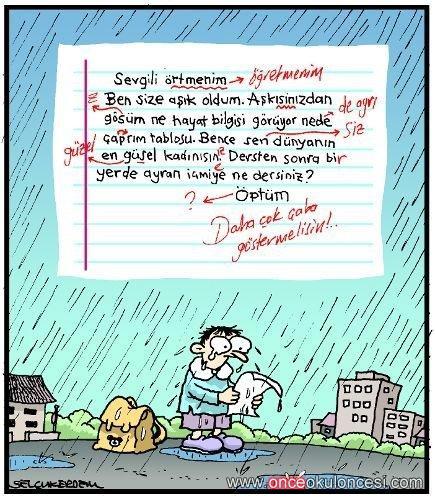 Sevgili örtmenim → öğretmenim
Ben size aşık oldum. Aşkısinızdan
gösüm ne hayat bilgisi görüyor nede de ayrı
çaprım tablosu. Bence sen dünyanın siz
güzel en güşel kadınısın. Dersten sonra bir
yerde ayran içmiye ne dersiniz?
? ← Öptüm
Daha çok çaba
göstermelisin!..
SELÇUK ERDEM
www.onceokuloncesi.com